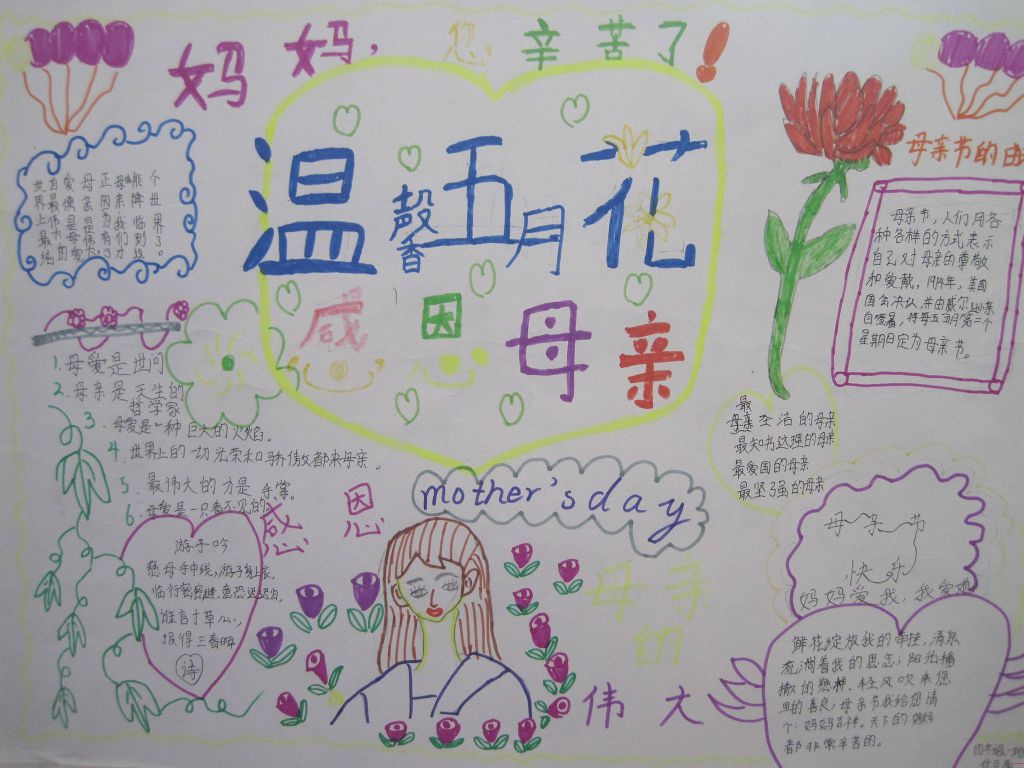 妈妈，您辛苦了！
温馨五月花
感恩母亲
世自爱母正母能个
界最像亲因亲降世
上伟是是为我临界
最大母伟有们到了
母亲节的由
母亲节，人们用各
种各样的方式表示
自己对母亲的尊敬
和爱戴，1914年，美国
国会决议，并由威尔逊亲
自签署，将每五五月第二个
星期日定为母亲节。
1.母爱是世间
2.母亲是天生的
哲学家
3.母爱是一种巨大的火焰。
4.世界上的一切光荣和骄傲都来母亲。
5.最伟大的力是手掌。
6.母爱是一只看不见的
最
母亲圣洁的母亲
最知书达理的母亲
最爱国的母亲
最坚强的母亲
感恩
mother's day
游子吟
慈母手中线，游子身上衣，
临行密密缝，意恐迟迟归。
谁言寸草心，
报得三春晖
诗
母亲的
伟大
母亲节
快乐
妈妈爱我，我爱妈
鲜花绽放我的牵挂，清泉
流淌着我的思念；阳光播
撒的慈祥，轻风吹来您
的善良；母亲节我给您请
个：妈妈吉祥。天下的妈妈
都非常辛苦的。
四年级一班